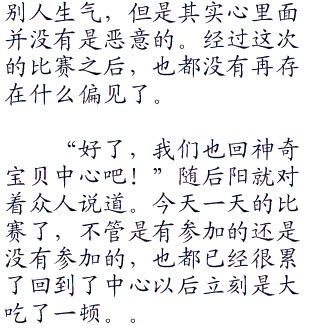 别人生气，但是其实心里面
并没有是恶意的。经过这次
的比赛之后，也都没有再存
在什么偏见了。
“好了，我们也回神奇
宝贝中心吧！”随后阳就对
着众人说道。今天一天的比
赛了，不管是有参加的还是
没有参加的，也都已经很累
了回到了中心以后立刻是大
吃了一顿。。